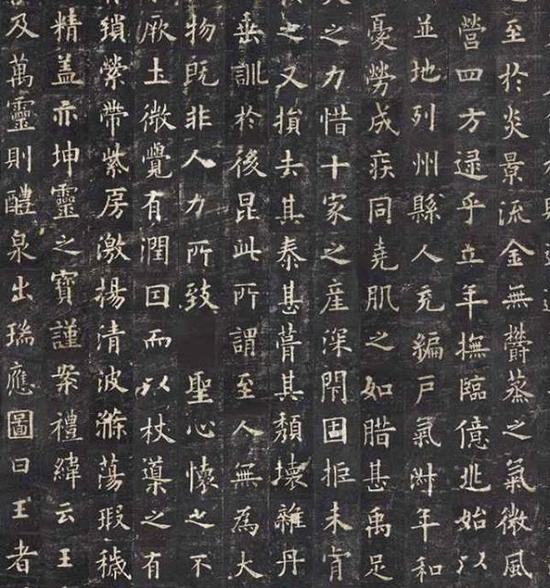 至於炎景流金無鬱蒸之氣微風
營四方逮乎立年撫臨億兆始以
並地列州縣人充編戶氣淑年和
憂勞成疾同堯肌之如腊甚禹足
之力惜十家之產深閉固拒未肯
之又損去其泰甚葺其頹壞雜丹
垂訓於後昆此所謂至人無為大
物既非人力所致 聖心懷之不
厥土微覺有潤因而以杖導之有
鎖縈帶紫房激揚清波滌蕩瑕穢
精蓋亦坤靈之寶謹案禮緯云王
及萬靈則醴泉出瑞應圖曰王者